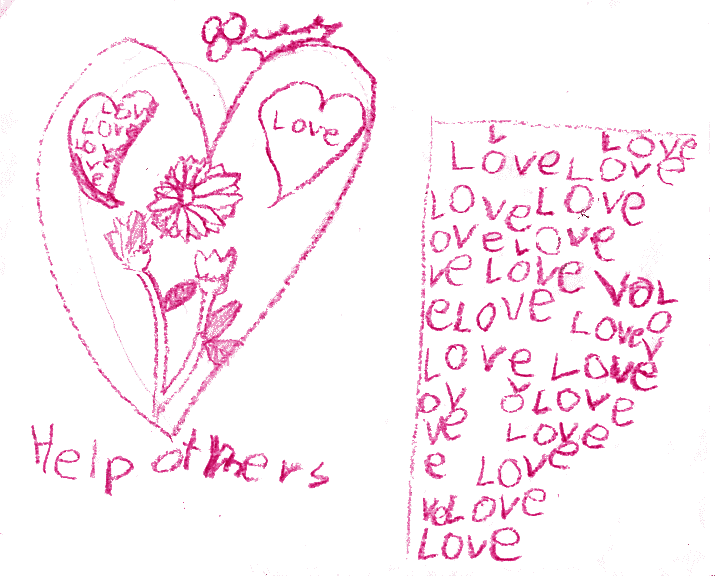 Love
Love
Love
ove
e
Love
Help others
L Love
Love Love
Love Love
ove Love
ve Love
eLove
Love
Love Love
ov Love
ve Love
e Love
Love
Love